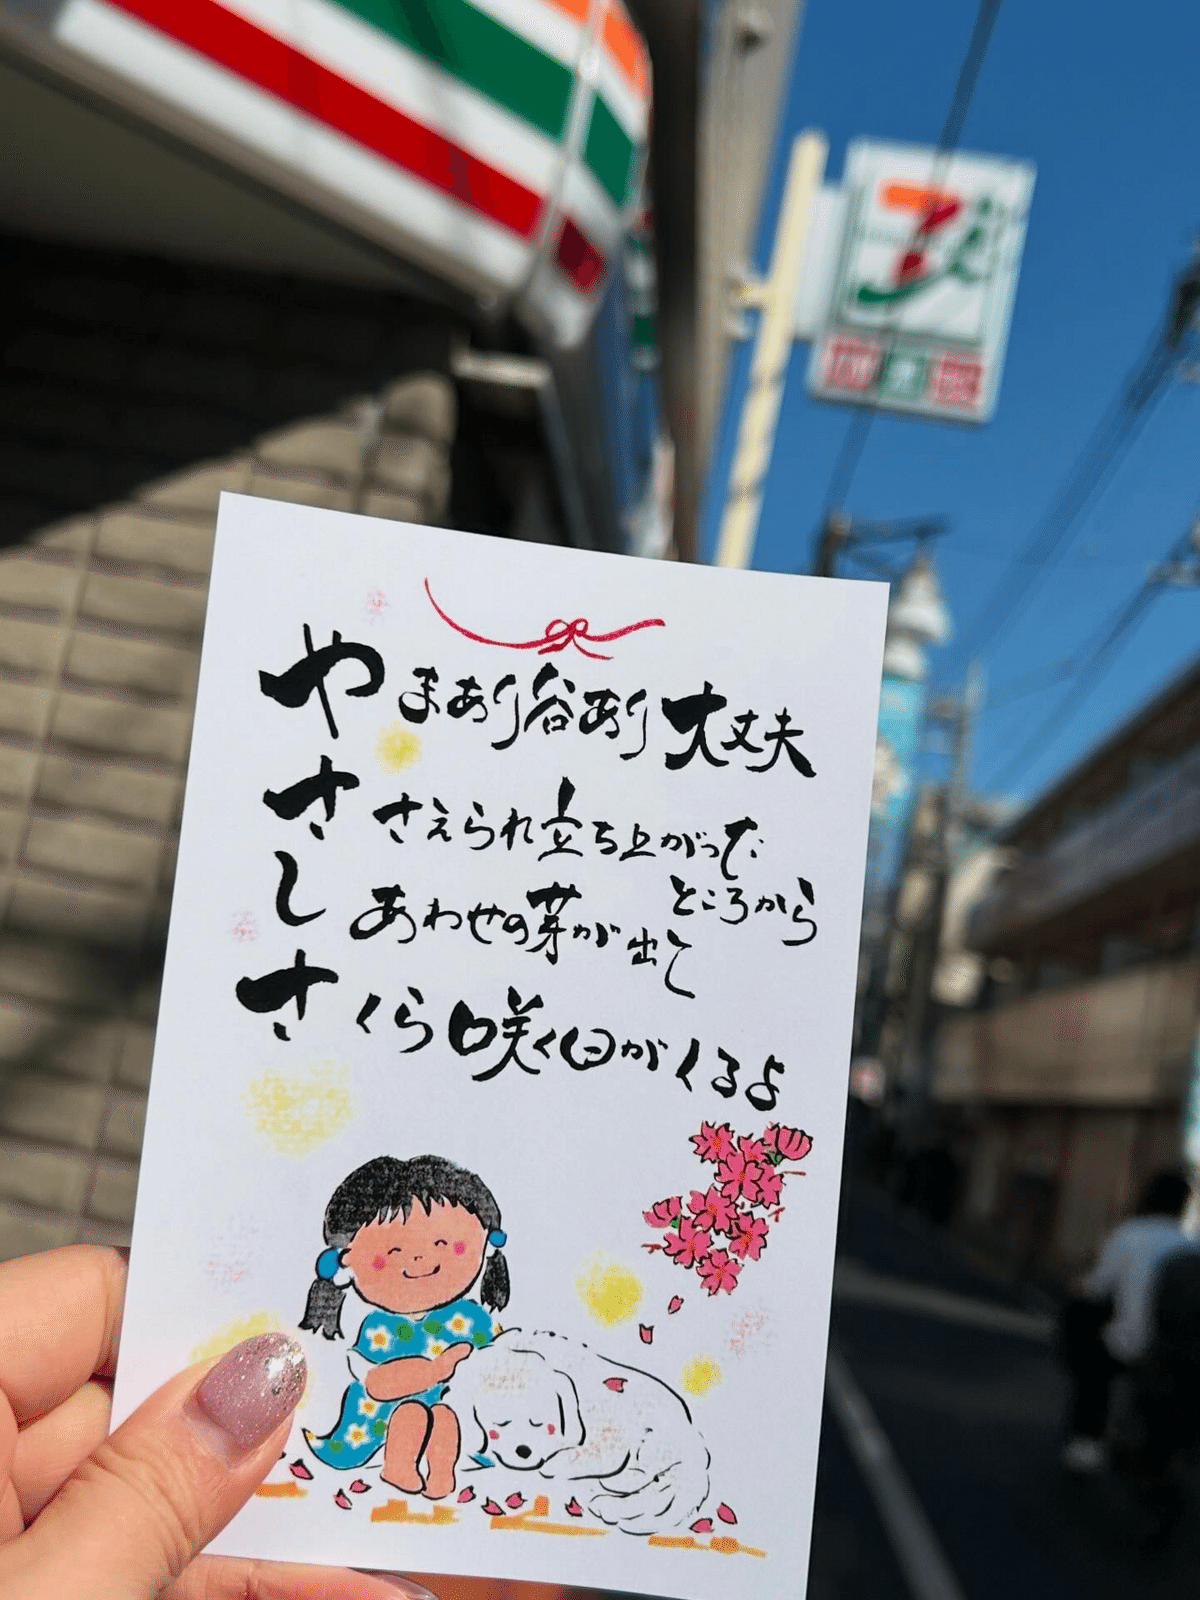 やまあり谷あり大丈夫
ささえられ立ち上がった
ところから
しあわせの芽が出て
さくら咲く日がくるよ